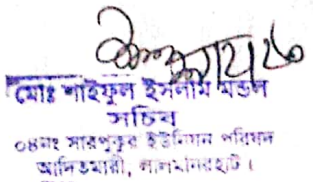 মোঃ শাইফুল ইসলাম মন্ডল
সচিব
০৪নং সারপুকুর ইউনিয়ন পরিষদ
আদিতমারী, লালমনিরহাট।